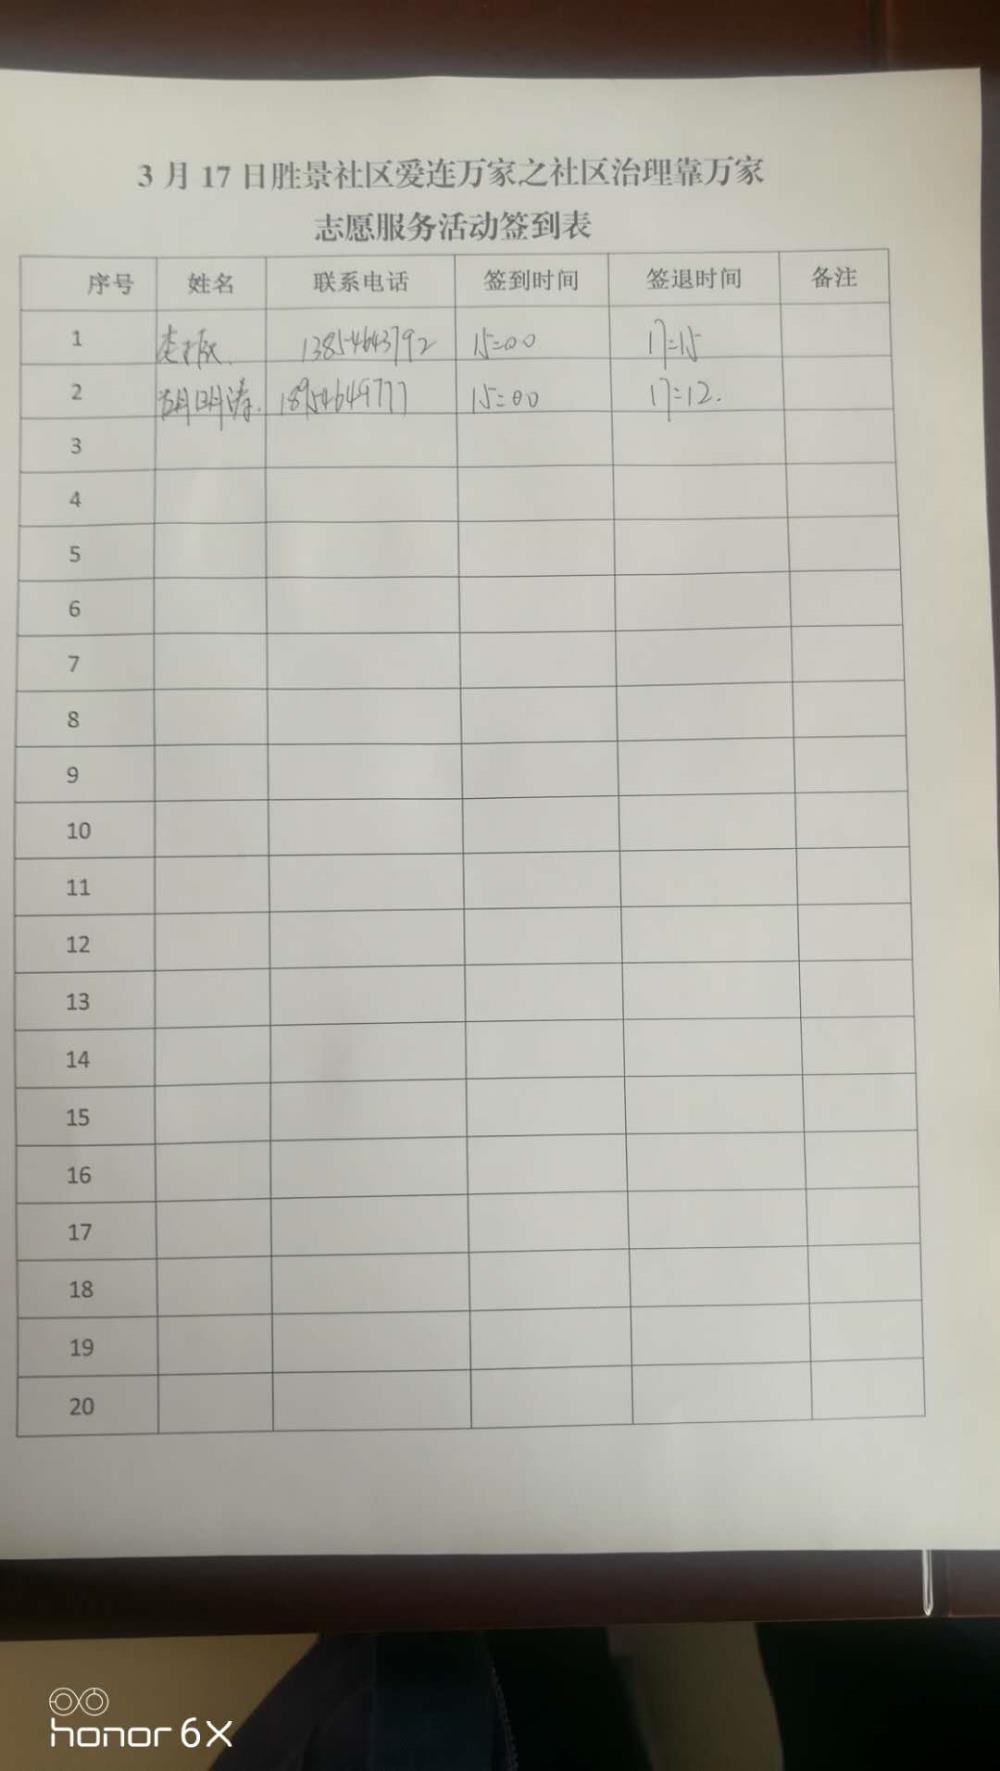 3月17日胜景社区爱连万家之社区治理靠万家
志愿服务活动签到表
序号 姓名 联系电话 签到时间 签退时间 备注
1 13854643792 15:00 17:15
2 胡明涛 18954649777 15:00 17:12
3
4
5
6
7
8
9
10
11
12
13
14
15
16
17
18
19
20
honor 6X